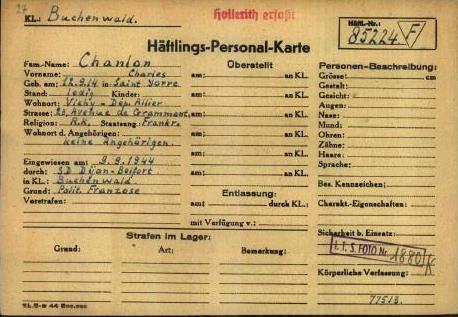 27
KL.: Buchenwald.
Hollerith erfaßt
Häftl.-Nr.:
85224. F
Häftlings-Personal-Karte
Fam.-Name: Chanlon
Vorname: Charles
Geb. am 12.9.14 in Saint Yorre
Stand: ledig Kinder:
Wohnort: Vichy - Dép. Allier
Strasse: 25, Avenue de Grammont
Religion: R.K. Staatsang: Frankr.
Wohnort d. Angehörigen:
keine Angehörigen.
Eingewiesen am: 9.9.1944
durch: SD Dijon-Belfort
in KL.: Buchenwald
Grund: Polit. Franzose
Vorstrafen:
Überstellt
am: an KL.
am: an KL.
am: an KL.
am: an KL.
am: an KL.
am: an KL.
Entlassung:
am: durch KL.:
mit Verfügung v.:
Personen-Beschreibung:
Grösse: cm
Gestalt:
Gesicht:
Augen:
Nase:
Mund:
Ohren:
Zähne:
Haare:
Sprache:
Bes. Kennzeichen:
Charakt.-Eigenschaften:
Sicherheit b. Einsatz:
I.T.S. FOTO Nr. 1880/K
Körperliche Verfassung:
77513.
Strafen im Lager:
Grund: Art: Bemerkung: